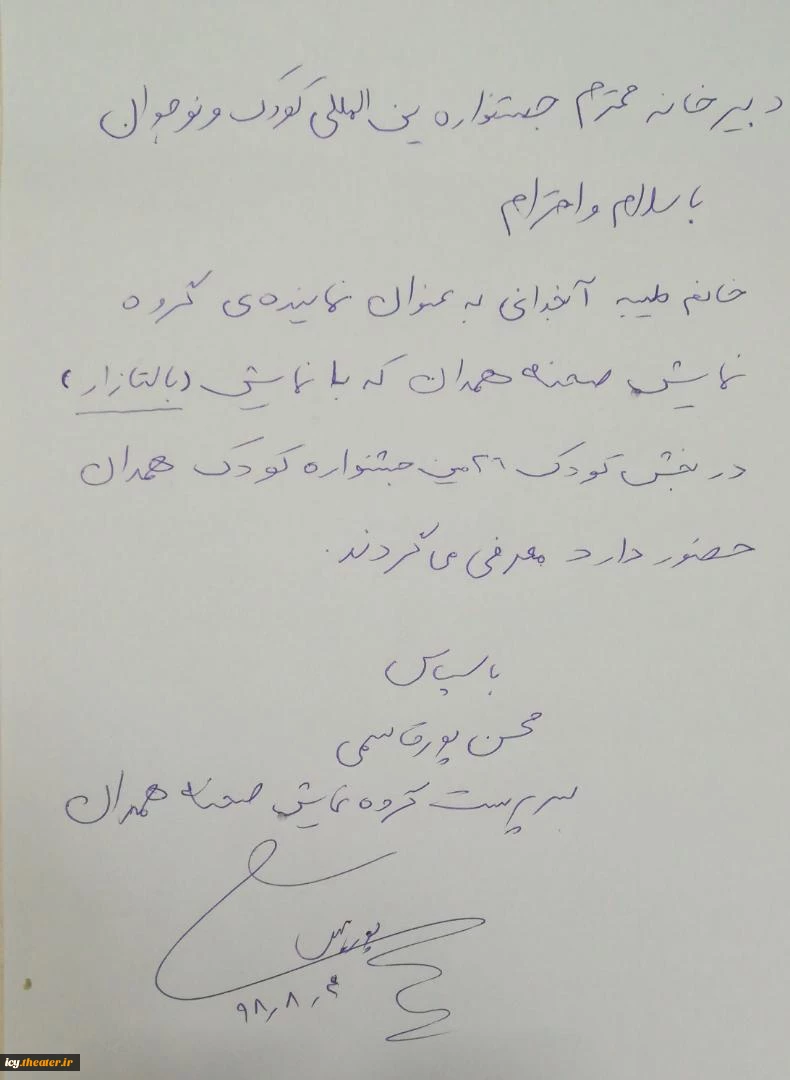 دبیرخانه محترم جشنواره بین المللی کودک و نوجوان
با سلام و احترام
خانم طیبه آنجدانی به عنوان نماینده‌ی گروه
نمایش صحنه همدان که با نمایش (بالتازار)
در بخش کودک ۲۶ مین جشنواره کودک همدان
حضور دارد معرفی می گردند.
با سپاس
محسن پورقاسمی
سرپرست گروه نمایش صحنه همدان
۹۸،۸،۴
icy.theater.ir